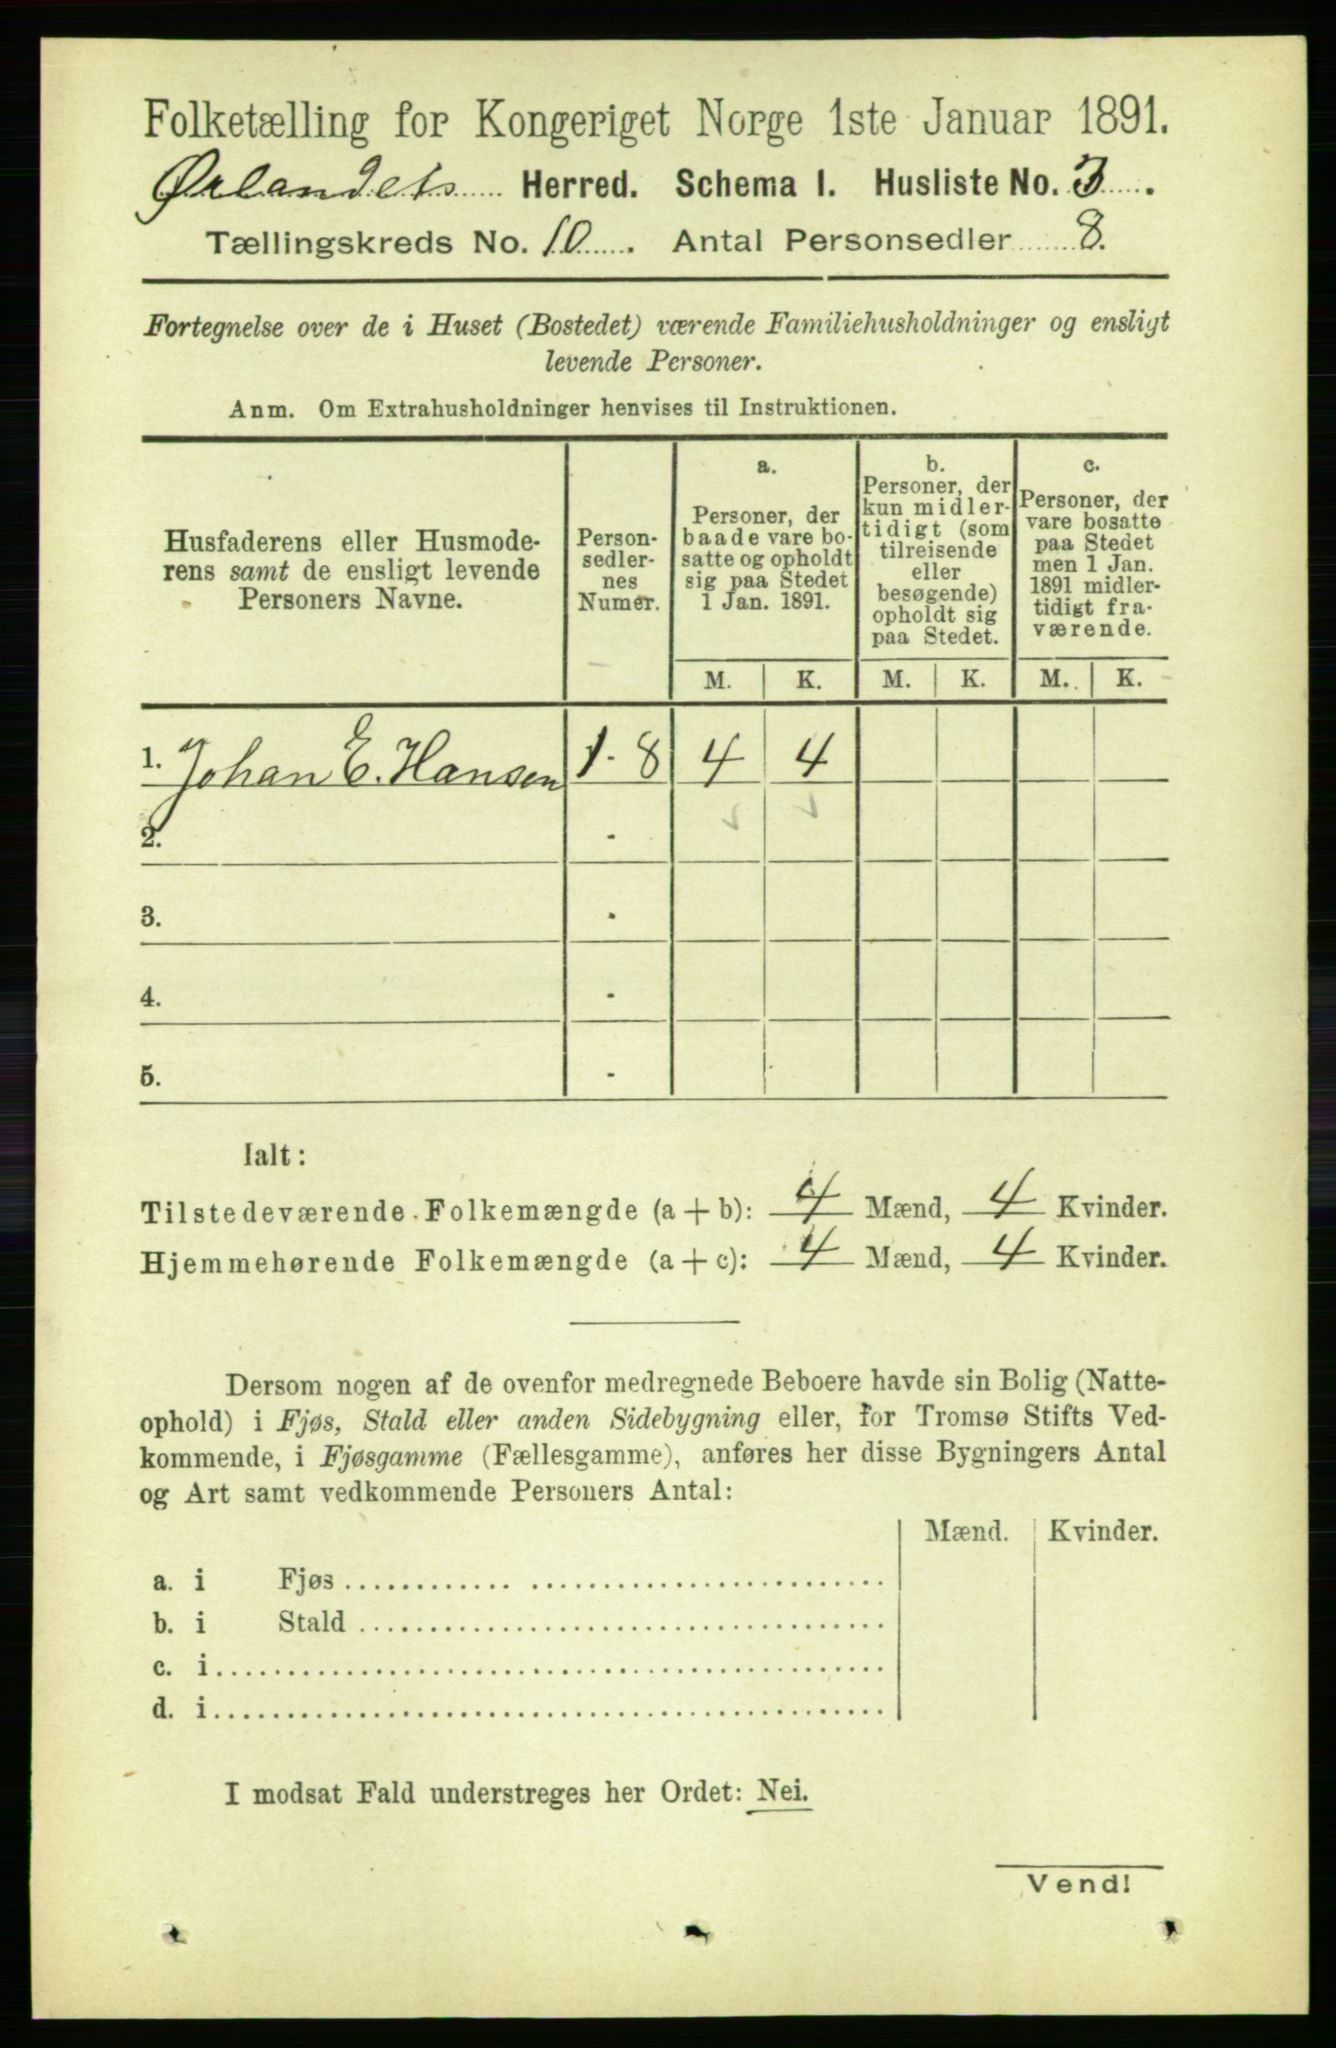 Folketælling for Kongeriget Norge 1ste Januar 1891.
Ørlandets Herred. Schema I. Husliste No. 3.
Tællingskreds No. 10. Antal Personsedler 8.
Fortegnelse over de i Huset (Bostedet) værende Familiehusholdninger og ensligt
levende Personer.
Anm. Om Extrahusholdninger henvises til Instruktionen.
Husfaderens eller Husmode-
rens samt de ensligt levende
Personers Navne.
Person-
sedler-
nes
Numer.
a.
Personer, der
baade vare bo-
satte og opholdt
sig paa Stedet
1 Jan. 1891.
b.
Personer, der
kun midler-
tidigt (som
tilreisende
eller
besøgende)
opholdt sig
paa Stedet.
c.
Personer, der
vare bosatte
paa Stedet
men 1 Jan.
1891 midler-
tidigt fra-
værende.
M. K. M. K. M. K.
1. Johan E. Hansen 1 - 8 4 4
2. -
3. -
4. -
5. -
Ialt:
Tilstedeværende Folkemængde (a + b): 4 Mænd, 4 Kvinder.
Hjemmehørende Folkemængde (a + c): 4 Mænd, 4 Kvinder.
Dersom nogen af de ovenfor medregnede Beboere havde sin Bolig (Natte-
ophold) i Fjøs, Stald eller anden Sidebygning eller, for Tromsø Stifts Ved-
kommende, i Fjøsgamme (Fællesgamme), anføres her disse Bygningers Antal
og Art samt vedkommende Personers Antal:
Mænd. Kvinder.
a. i Fjøs
b. i Stald
c. i
d. i
I modsat Fald understreges her Ordet: Nei.
Vend!